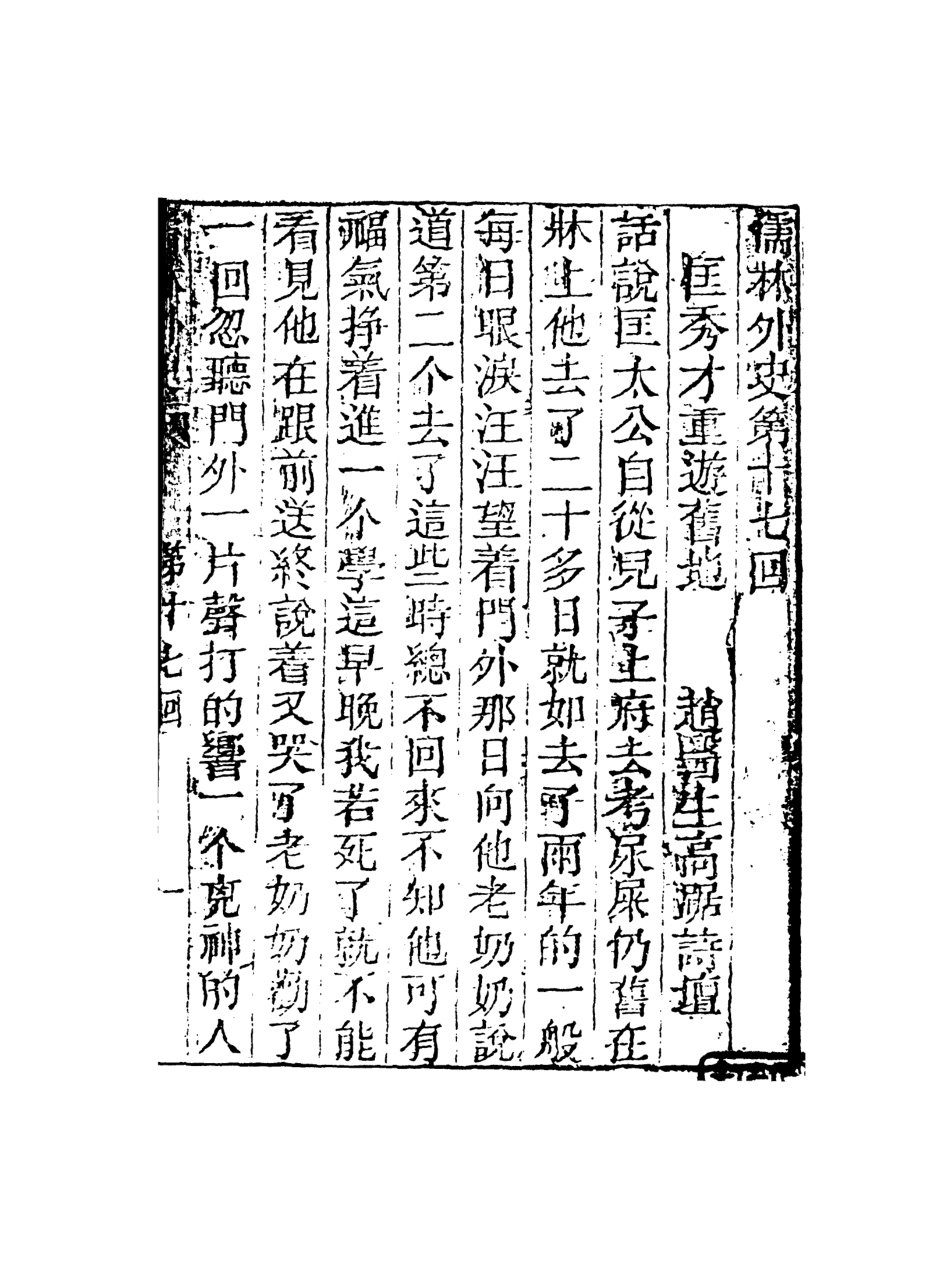 儒林外史第十七回
匡秀才重遊舊地　趙醫生高踞詩壇
話說匡太公自從兒子上府去考尿屎仍舊在
牀上他去了二十多日就如去了兩年的一般
每日眼淚汪汪望着門外那日向他老奶奶說
道第二个去了這些時總不回來不知他可有
福氣掙着進一个學這早晚我若死了就不能
看見他在跟前送終說着又哭了老奶奶勸了
一回忽聽門外一片聲打的響一个兇神的人
第十七回
一